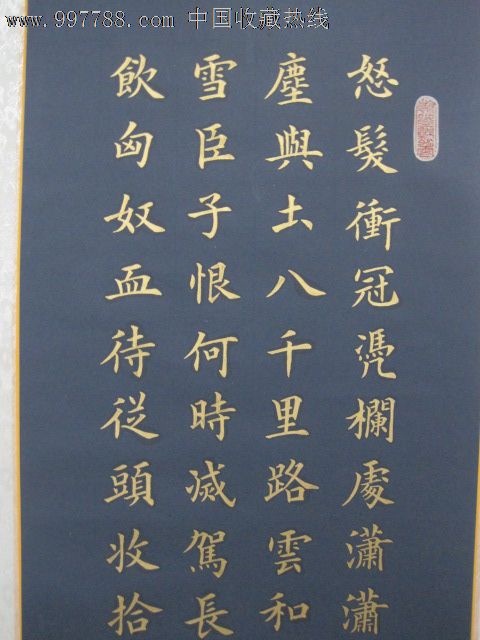 www.997788.com 中国收藏热线
怒髮衝冠凴欄處瀟瀟
塵與土八千里路雲和
雪臣子恨何時滅駕長
飲匈奴血待從頭收拾